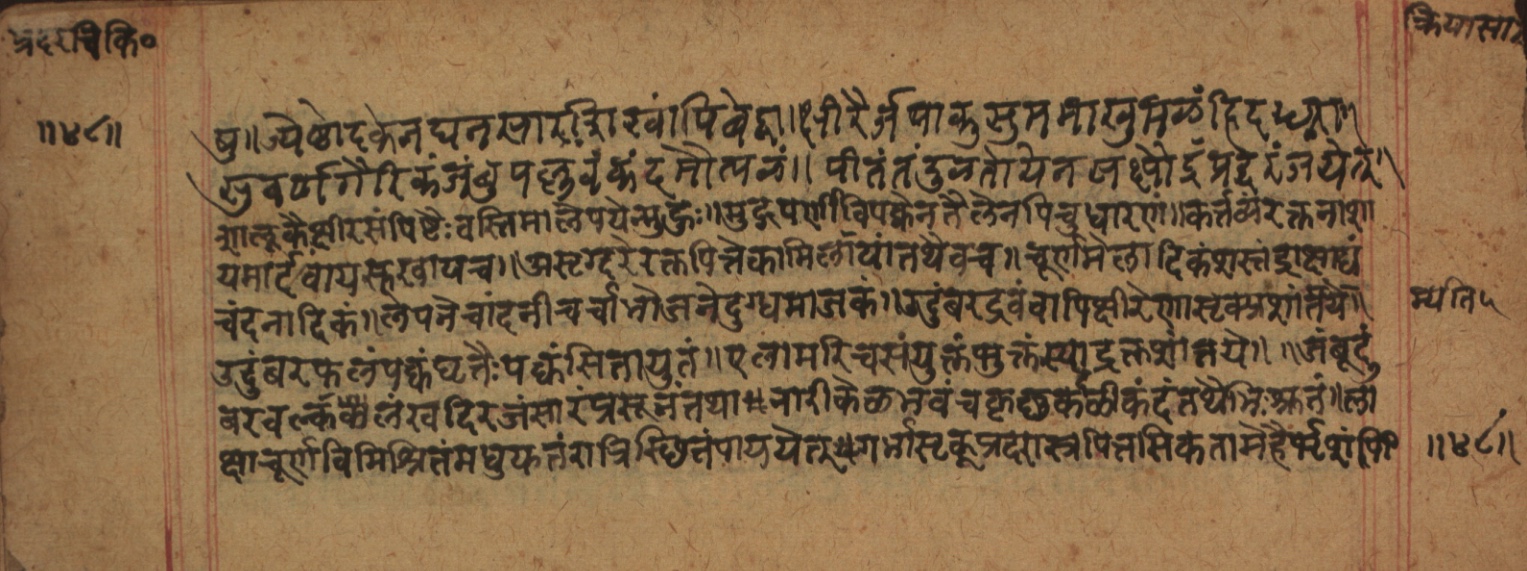 प्रदरचिकि०
क्रियासा
॥४८॥
षु॥ज्येष्ठोदकेनघनसार पिबेद्वा॥क्षीरैर्जपाकुसुममाखुमलंहिदध्ना॥
सुवर्णगैरिकंजंबुपल्लवंकंदमौत्पलं॥पीतंतंदुलतोयेन प्रदरंजयेत्॥
शालूकैक्षीरसंपिष्टैःवस्तिमालेपयेन्मुहुः॥मुद्गपर्णीविपक्वेनतैलेनपिचुधारणं॥कर्त्तव्यंरक्तनाशा
यमार्दवायसुखायच॥असृग्दरेरक्तपित्तेकामिलायांतथैवच॥चूर्णमेलादिकंशस्तंद्राक्षाद्यं
चंदनादिकं॥लेपनेचांदनीचर्चाभोजनेदुग्धमाजकं॥उदुंबरद्रवंवापिक्षीरेणासृक्प्रशांतये॥
उदुंबरफलंपक्वंघृतैःपक्वंसितायुतं॥एलामरिचसंयुक्तंभुक्तंस्याद्रक्तशांतये॥॥जंबूदुं
बरवल्क खदिरजंसारंप्रसूनंतथा॥नारीकेळभवंच कंदंतथा ॥ला
क्षाचूर्णविमिश्रितंमधुयुतंरात्रिस्थितंपाययेत्॥गर्भासृक्प्रदरास्रपित्तसिकतामेहै
म्यति५
॥४८॥